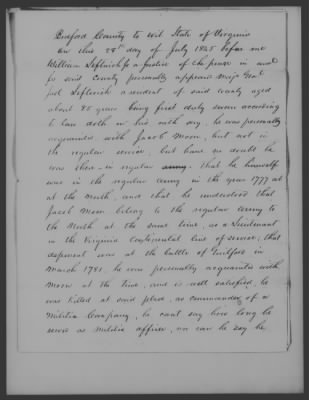 Bedford County to wit State of Virginia
On this 28th day of July 1845 before me
William Leftwich Jr a Justice of the peace in and
for said County personally appears Majr Genl
Joel Leftwich a resident of said county aged
about 85 years being first duly sworn according
to law doth on his oath say, he was personally
acquainted with Jacob Moon, but not in
the regular service, but have no doubt he
was then in regular army. That he himself
was in the regular army in the year 1777 at
at the north, and that he understood that
Jacob Moon belong to the regular army to
the North at the same time, as a Lieutenant
in the Virginia Continental line of service; that
deponent was at the battle of Guilford in
March 1781, he was personally acquainted with
Moon at the time, and is well satisfied, he
was killed at said place, as commander of a
Militia Company, he cant say how long he
served as militia officer, nor can he say he